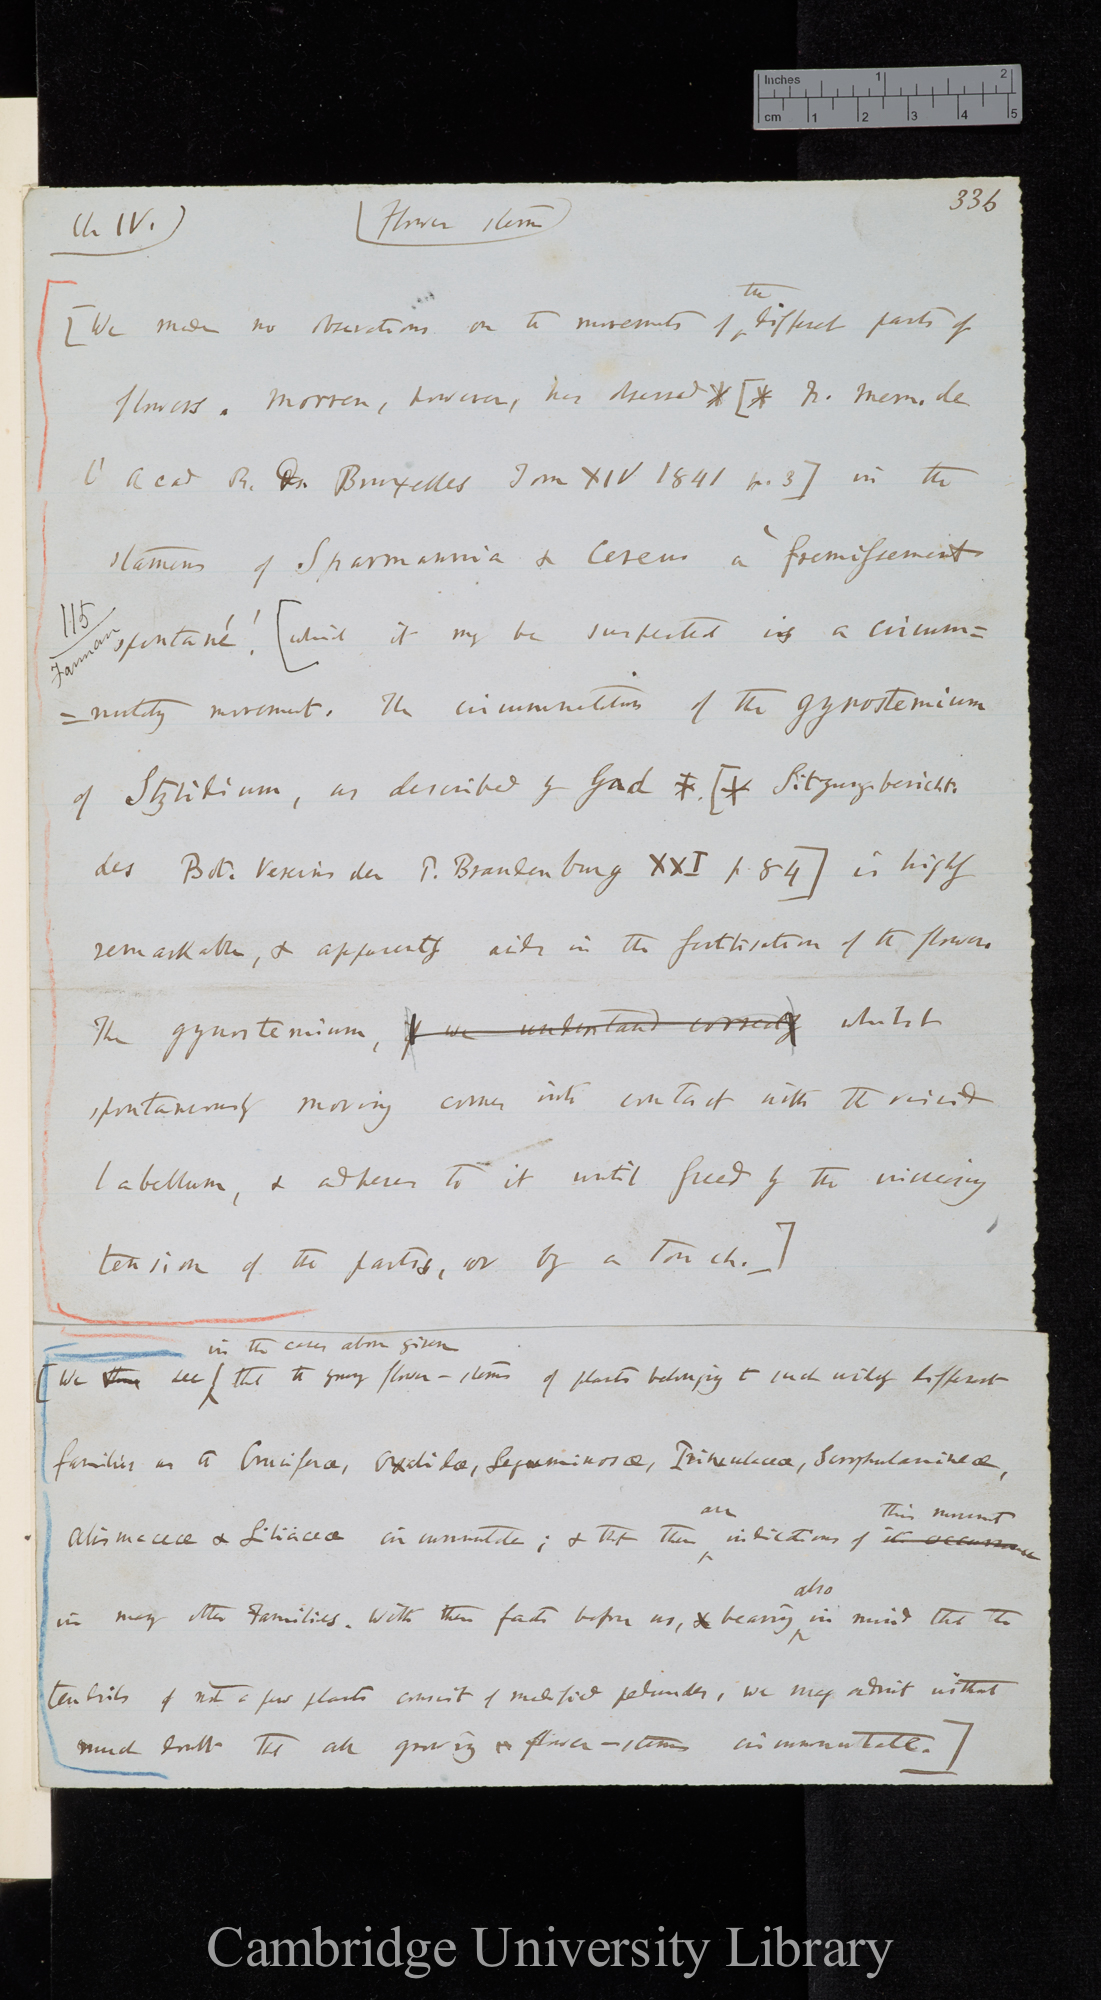 Inches 1 2
cm 1 2 3 4 5
336
Ch IV.) (Flower stems)
the
[We made no observations on the movements of different parts of
flowers. Morren, however, has observed * [* N. Mem. de
l' Acad R. de Bruxelles Tom XIV 1841 p. 3] in the
stamens of Sparmannia & Cereus a fremissement
115
spontané! [which it may be suspected is a circum=
=nutating movement. The circumnutation of the gynostemium
of Stylidium, as described by Gad *. [* Sitzungbericht.
des Bot. Vereins der P. Brandenburg XXI p 84] is highly
remarkable, & apparently aids in the fertilisation of the flowers
The gynostemium, if we understand correctly whilst
spontaneously moving comes into contact with the viscid
labellum, & adheres to it until freed by the increasing
tension of the parts, or by a touch.]
in the cases above given
[We see that the young flower-stems of plants belonging to such widely different
families as the Cruciferæ, Oxalidæ, Leguminosæ, Primulaceæ, Scrophularineæ,
are this movement
Alismaceæ & Liliaceæ circumnutate; & that there indications of its occurrence
also
in many other Families. With these facts before us, & bearing in mind that the
tendrils of not a few plants consist of modified peduncles, we may admit without
much doubt that all growing flower-stems circumnutate.]
Cambridge University Library